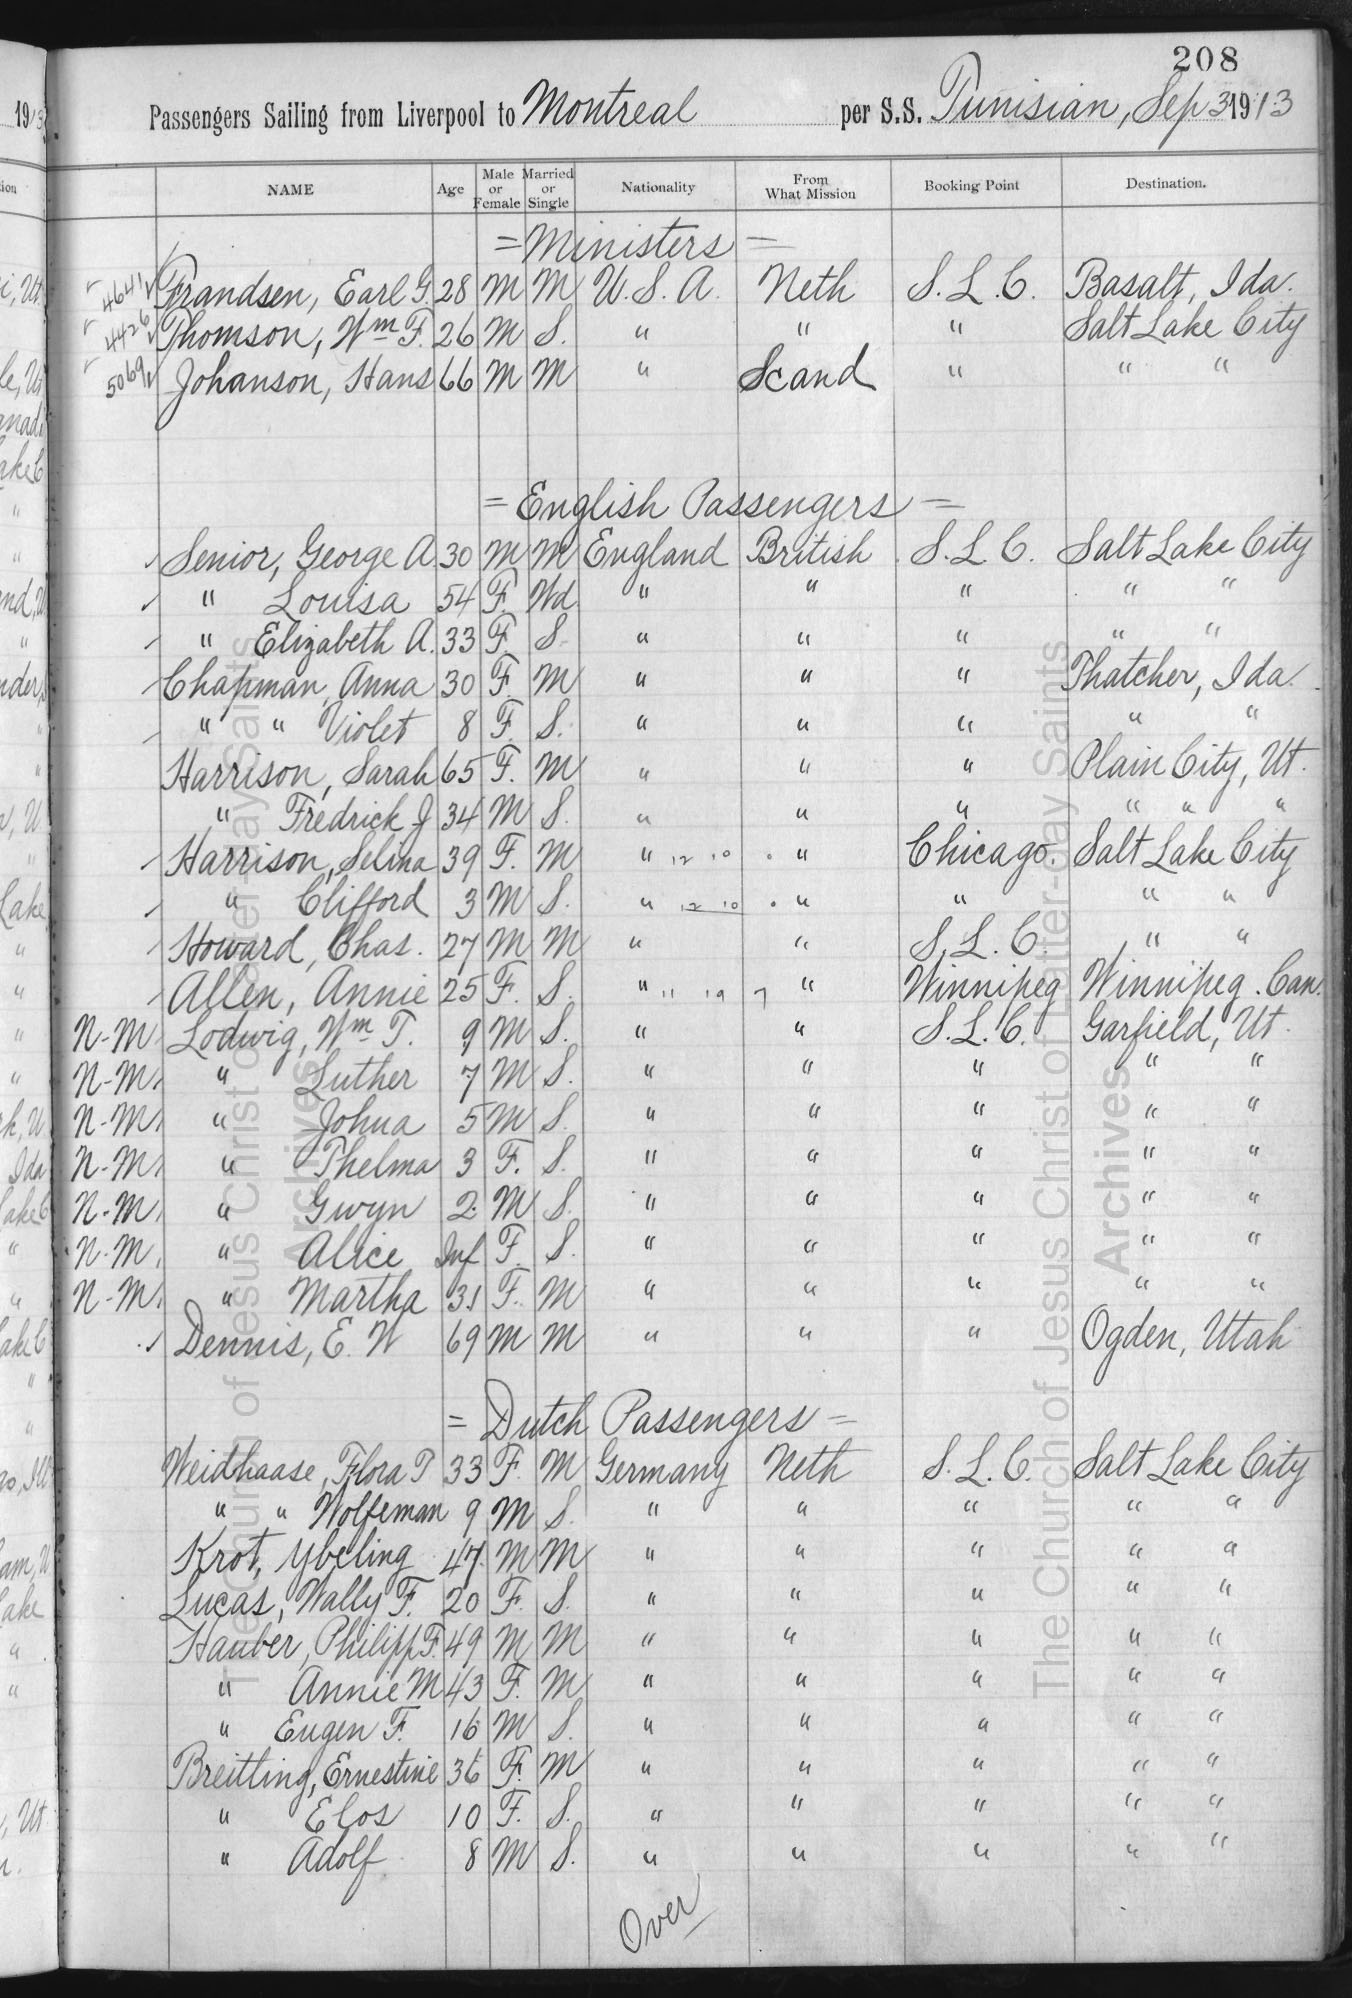 208
Passengers Sailing from Liverpool to Montreal per S.S. Tunisian, Sep 3 1913
NAME Age Male or Female Married or Single Nationality From What Mission Booking Point Destination.
= Ministers =
4641 Frandsen, Earl G. 28 M M U. S. A. Neth S. L. C. Basalt, Ida.
4426 Thomson, Wm F. 26 M S. " " " Salt Lake City
5069 Johanson, Hans 66 M M " Scand " " "
= English Passengers =
Senior, George A. 30 M M England British S. L. C. Salt Lake City
" Louisa 54 F. Wd. " " " " "
" Elizabeth A. 33 F. S. " " " " "
Chapman, Anna 30 F. M " " " Thatcher, Ida.
" " Violet 8 F. S. " " " " "
Harrison, Sarah 65 F. M " " " Plain City, Ut.
" Fredrick J 34 M S. " " " " " "
Harrison, Selina 39 F. M " 12 10 . " Chicago. Salt Lake City
" Clifford 3 M S. " 12 10 . " " " "
Howard, Chas. 27 M M " " S. L. C. " "
Allen, Annie 25 F. S. " 11 19 7 " Winnipeg Winnipeg. Can.
N-M. Lodwig, Wm T. 9 M S. " " S. L. C. Garfield, Ut.
N-M. " Luther 7 M S. " " " " "
N-M. " Johua 5 M S. " " " " "
N-M. " Thelma 3 F. S. " " " " "
N-M. " Gwyn 2. M S. " " " " "
N-M. " Alice Inf F. S. " " " " "
N-M. " Martha 31 F. M " " " " "
Dennis, E. W 69 M M " " " Ogden, Utah
= Dutch Passengers =
Weidhaase, Flora P 33 F. M Germany Neth S. L. C. Salt Lake City
" " Wolfeman 9 M S. " " " " "
Krot, Ybeling 47. M M " " " " "
Lucas, Wally F. 20 F. S. " " " " "
Hauber, Philipp F. 49 M M " " " " "
" Annie M 43 F. M " " " " "
" Eugen F. 16 M S. " " " " "
Breitling, Ernestine 36 F. M " " " " "
" Elos 10 F. S. " " " " "
" Adolf 8 M S. " " " " "
Over
The Church of Jesus Christ of Latter-day Saints
Archives
The Church of Jesus Christ of Latter-day Saints
Archives